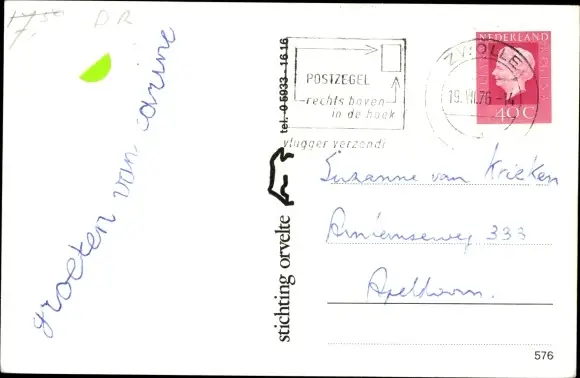 17,50 DR
7.
groeten van Carine
stichting orvelte
tel. 0 5933 - 16 16
POSTZEGEL
rechts boven
in de hoek
vlugger verzendi
ZWOLLE
19.VIII.76 -14
NEDERLAND
40c
Suzanne van Krieken
Arnhemseweg 333
Apeldoorn.
576